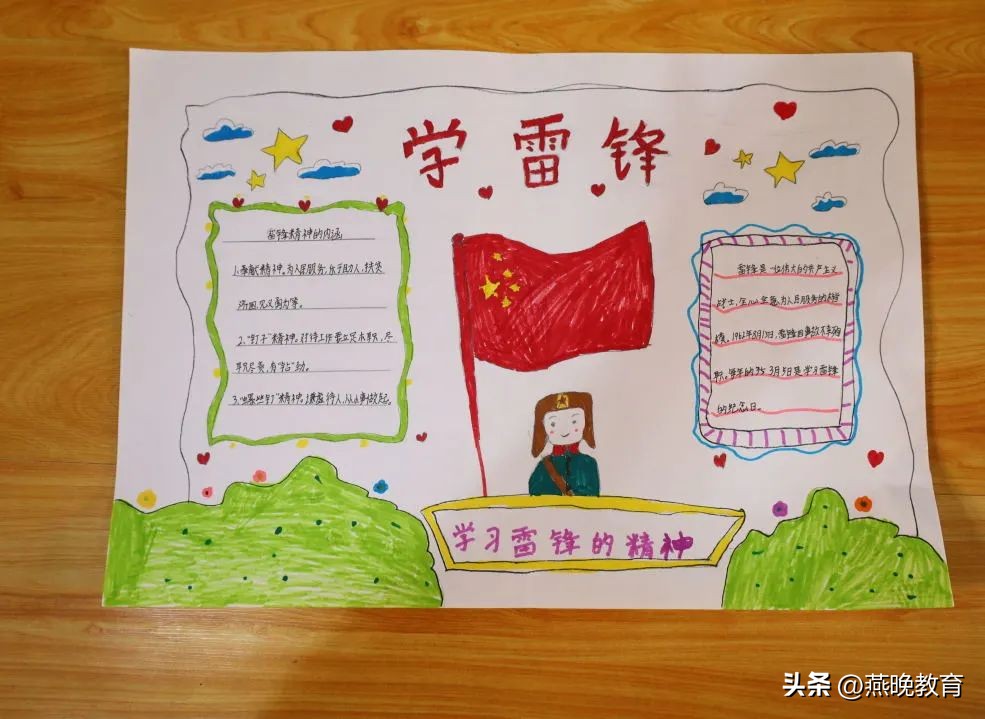 学雷锋
雷锋精神的内涵
1.奉献精神。为人民服务,乐于助人,扶贫
济困,见义勇为等。
2."钉子"精神。对待工作要立足本职,尽
职尽责,有"钻"劲。
3.“螺丝钉”精神。谦虚待人,从小事做起。
雷锋是一位伟大的共产主义
战士,全心全意为人民服务的楷
模。1962年8月15日,雷锋因事故不幸殉
职。每年的 3月5日是学习雷锋
的纪念日。
学习雷锋的精神
头条 @燕晚教育